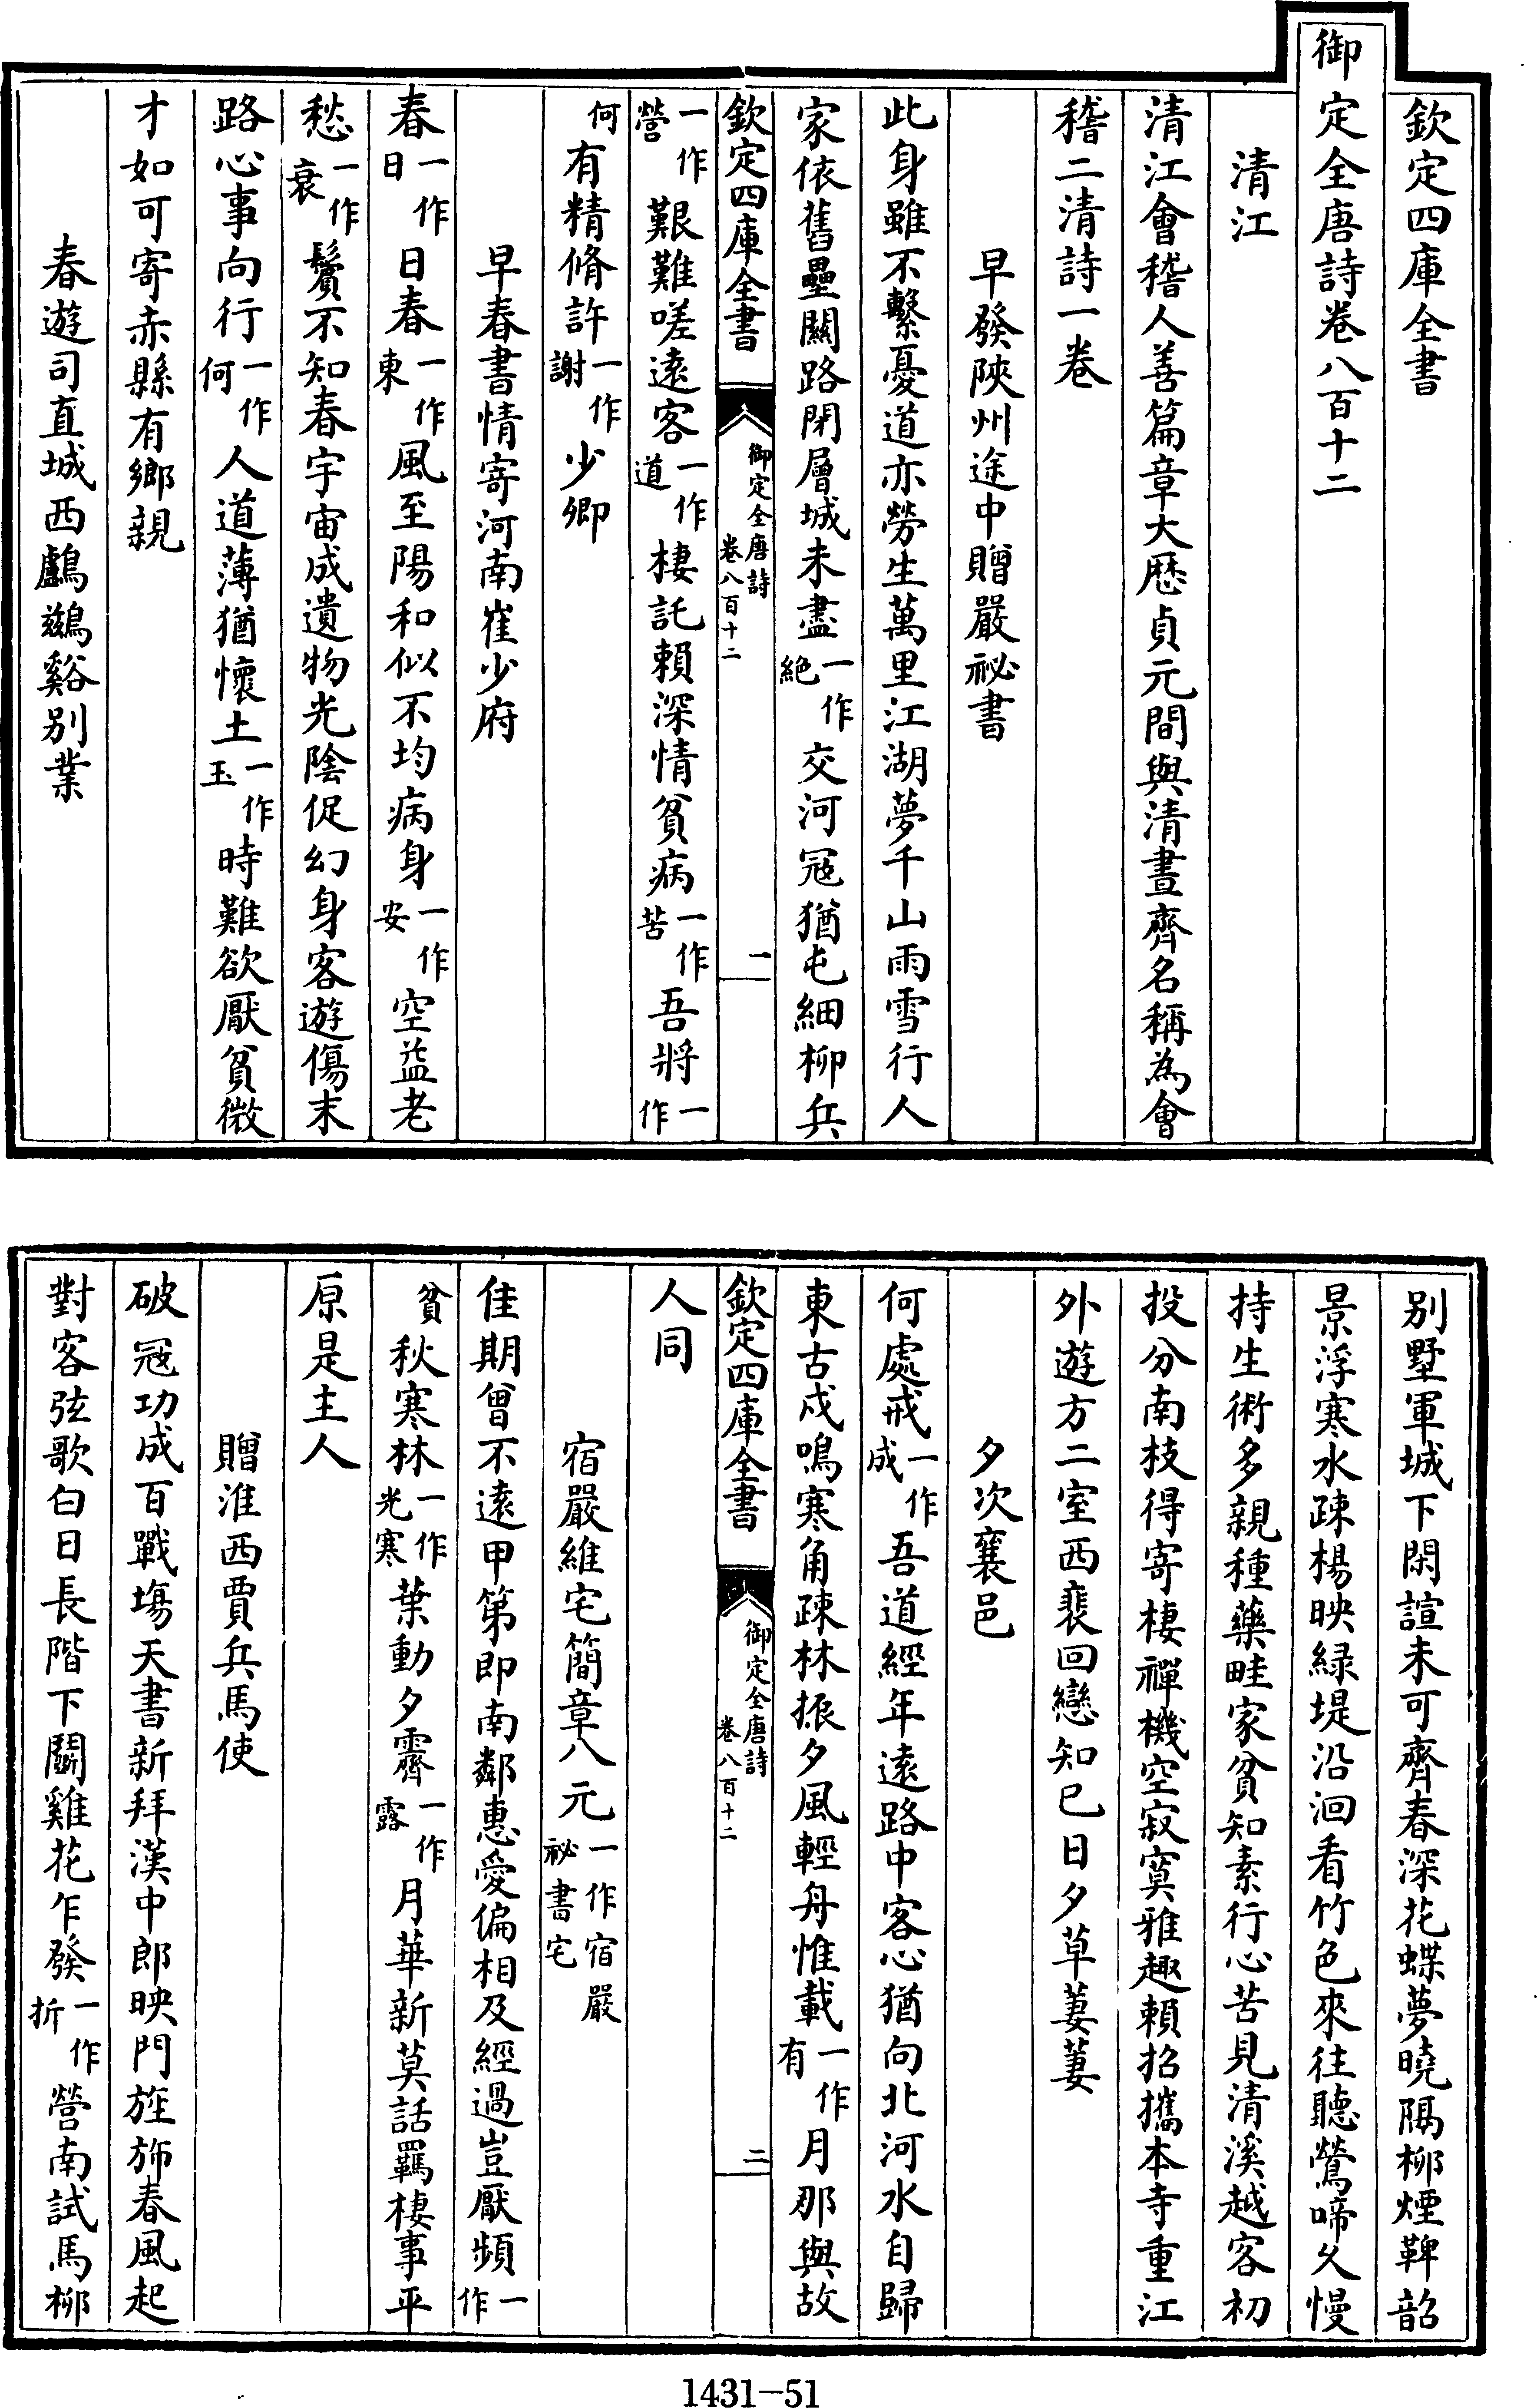 欽定四庫全書
御定全唐詩卷八百十二
清江
清江會稽人善篇章大厯貞元間與清晝齊名稱為會
稽二清詩一卷
早發陝州途中贈嚴祕書
此身雖不繫憂道亦勞生萬里江湖夢千山雨雪行人
家依舊壘關路閉層城未盡一作絶交河冦猶屯細柳兵
欽定四庫全書 御定全唐詩卷八百十二 一
一作營艱難嗟遠客一作道棲託賴深情貧病一作苦吾將一作
何有精脩許一作謝少卿
早春書情寄河南崔少府
春一作日日春一作東風至陽和似不均病身一作安空益老
愁一作衰鬢不知春宇宙成遺物光陰促幻身客遊傷末
路心事向行一作何人道薄猶懷土一作玉時難欲厭貧微
才如可寄赤縣有鄉親
春遊司直城西鸕鷀谿别業
别墅軍城下閑諠未可齊春深花蝶夢曉隔栁煙鞞韶
景浮寒水疎楊映緑堤沿洄看竹色來往聽鶯啼久慢
持生術多親種藥畦家貧知素行心苦見清溪越客初
投分南枝得寄棲禪機空寂寞雅趣賴招攜本寺重江
外遊方二室西裴回戀知已日夕草萋萋
夕次襄邑
何處戒一作成吾道經年遠路中客心猶向北河水自歸
東古戍鳴寒角疎林振夕風輕舟惟載一作有月那與故
欽定四庫全書 御定全唐詩卷八百十二 二
人同
宿嚴維宅簡章八元一作宿嚴祕書宅
佳期曾不遠甲第即南鄰惠愛偏相及經過豈厭頻一作
貧秋寒林一作光寒葉動夕霽一作露月華新莫話羈棲事平
原是主人
贈淮西賈兵馬使
破冦功成百戰塲天書新拜漢中郎映門旌斾春風起
對客弦歌白日長階下鬬雞花乍發一作折營南試馬栁
1431-51